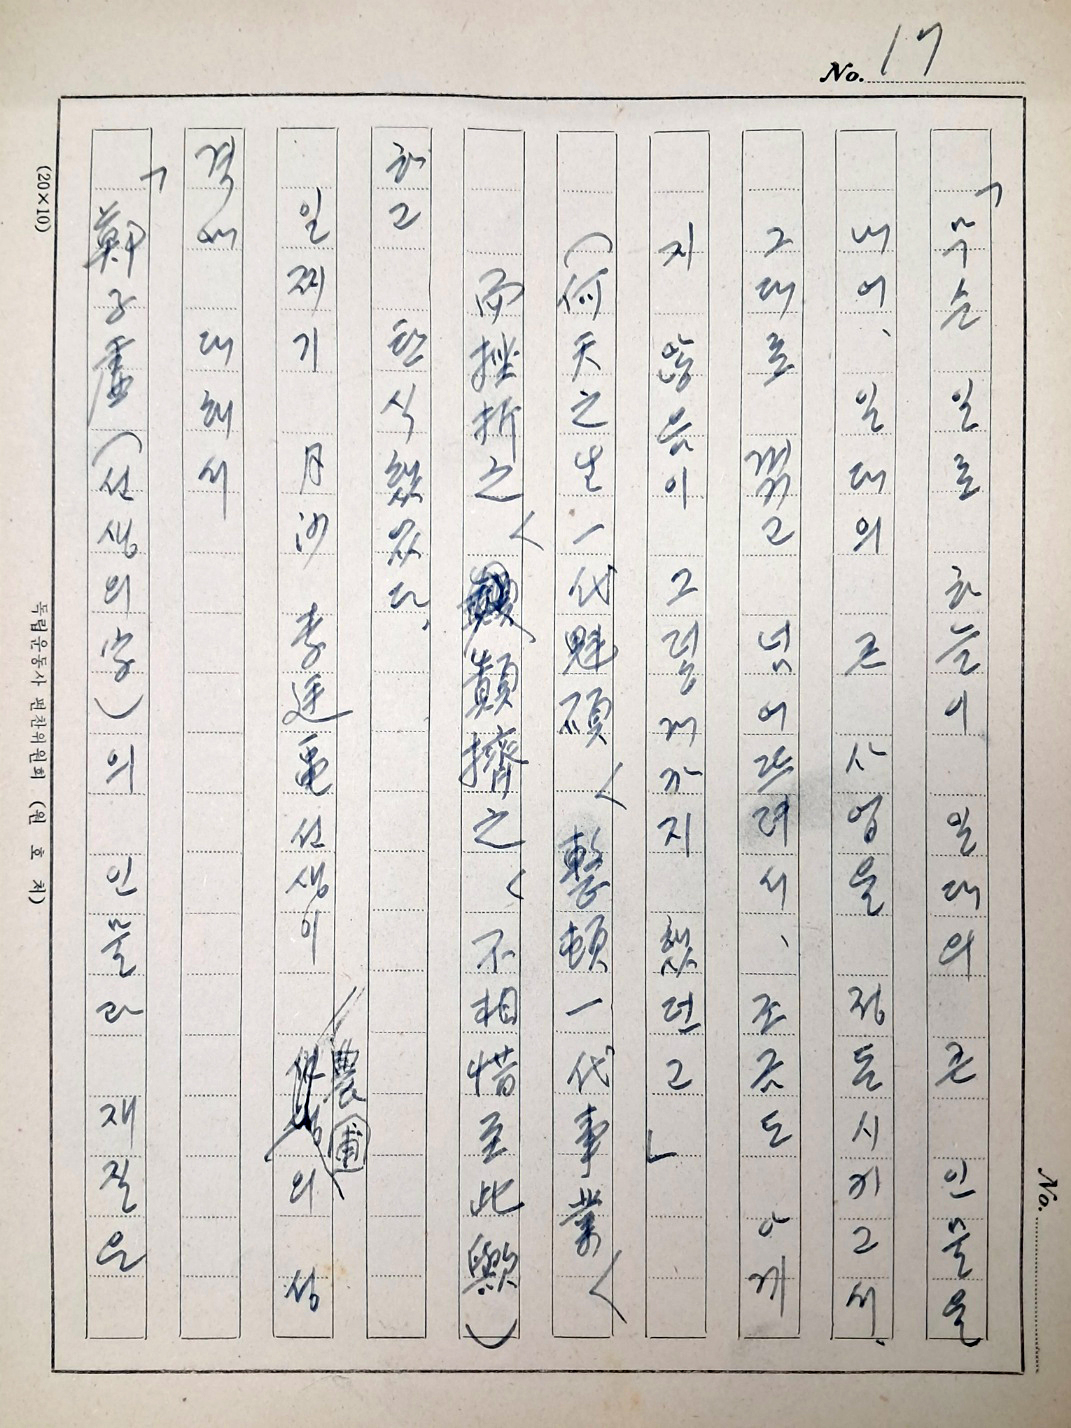 No. 17
「무슨 일로 하늘이 일대의 큰 인물을
내어, 일대의 큰 사업을 정돈시키고서,
그대로 꺾고 넘어뜨려서, 조금도 아끼
지 않음이 그렇게까지 했던고」
(何天之生一代魁碩 整頓一代事業
而挫折之 顚擠之 不相惜至此歟)
하고 탄식했었다.
일찌기 月沙 李廷龜선생이 農圃의 성
격에 대해서
「鄭子虛(선생의 字)의 인물과 재질은
(20×10)
독립운동사 편찬위원회 (원호처)
No.